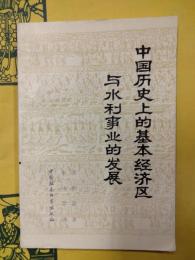 中国历史上的基本经济区
与水利事业的发展
中国社会科学出版社